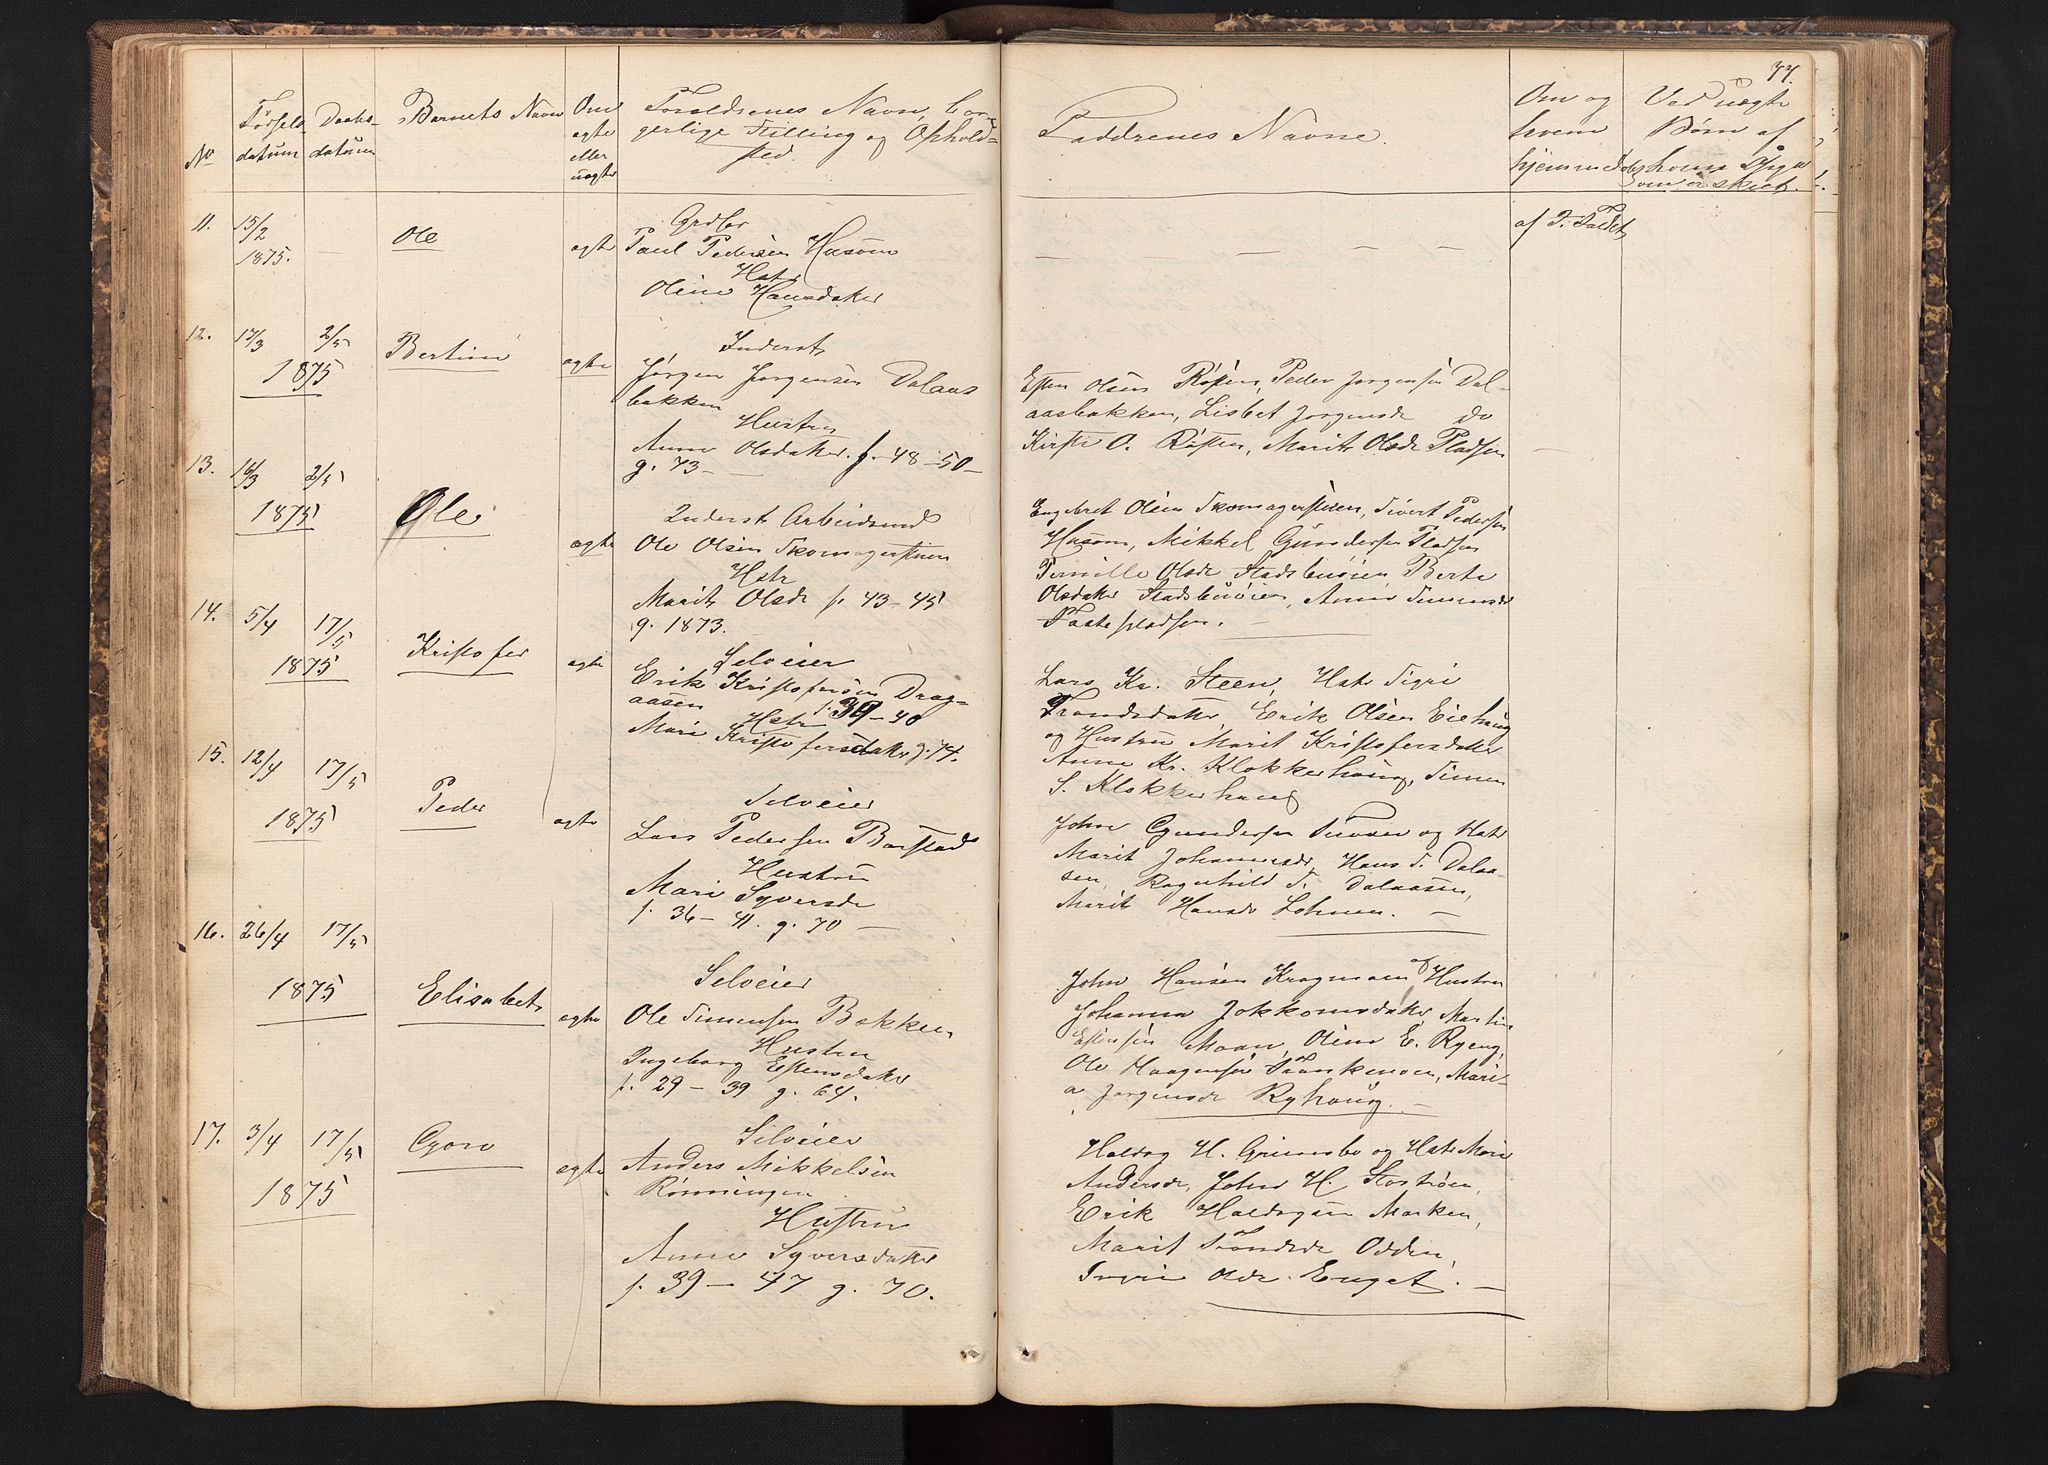 77.
No
Fødsels datum
Daabs- datum
Barnets Navn
Om ægte eller uægte
Forældrenes Navn, bor-
gerlige Stilling og Ophold-
sted.
Faddrenes Navne.
Om og hvem hjemmedøbt
Ved uægte
Børn af
11. 15/2 1875. — Ole ægte
Grdbr
Paul Pedersen Husom
Hstr
Oline Hansdatter
— — — —
af P. Faldet
12. 17/3 2/5 1875 Bertine ægte
Inderst
Jørgen Jørgensen Dalaas
bakken
Hustru
Anne Olsdatter. f. 48–50–
g. 73 —
Esten Olsen Røsten, Peder Jørgensen Dal-
aasbakken, Lisbet Jørgensdr do
Kirsti O. Røsten, Marit Olsdr Pladsen
13. 16/3 2/5 1875 Ole ægte
Inderst Arbeidsmd
Ole Olsen Skomagerstuen
Hstr
Marit Olsdr f. 43–45
g. 1873.
Engebret Olsen Skomagerstuen, Sivert Pedersen
Husom, Mikkel Gundersen Pladsen
Pernille Olsdr Stadsbuøien, Berte
Olsdatter Stadsbuøien, Anne Simensdr
Pladsen.
14. 5/4 17/5 1875 Kristofer ægte
Selveier
Erik Kristofersøn Drag-
aasen f. 39–40
Hstr
Mari Kristofersdatter g. 74.
Lars Kr. Steen, Hstr Sigri
Trondsdatter, Erik Olsen Eiehaug
og Hustru Marit Kristofersdatter
Anne Kr. Klokkerhaug, Simen
S. Klokkerhaug
15. 12/4 17/5 1875 Peder ægte
Selveier
Lars Pedersen Barstad
Hustru
Mari Syversdr
f. 36–41. g. 70 —
John Gundersen og Hstr
Marit Johannesdr, Hans S. Dalaa-
sen, Ragnhild S. Dalaasen,
Marit Hansdr Lohnen. —
16. 26/4 17/5 1875 Elisabet ægte
Selveier
Ole Simensen Bakken
Hustru
Ingeborg Estensdatter
f. 29–39 g. 64.
John Hansen Kragmoen og Hustru
Johanna Jokkomsdatter, Martin
Estensen Moan, Oline E. Ryeng,
Ole Haagensen, Mari-
a Jørgensdr Ryhaug. —
17. 3/4 17/5 1875 Goro ægte
Selveier
Anders Mikkelsen
Rønningen
Hustru
Anne Syversdatter
f. 39–47 g. 70.
Haldog H. Grimsbo og Hstr Mari
Andersdr, John H. Stostrøen,
Erik Haldogsen Moken,
Marit Trondsdr Odden,
Ingri Olsdr Enget. —